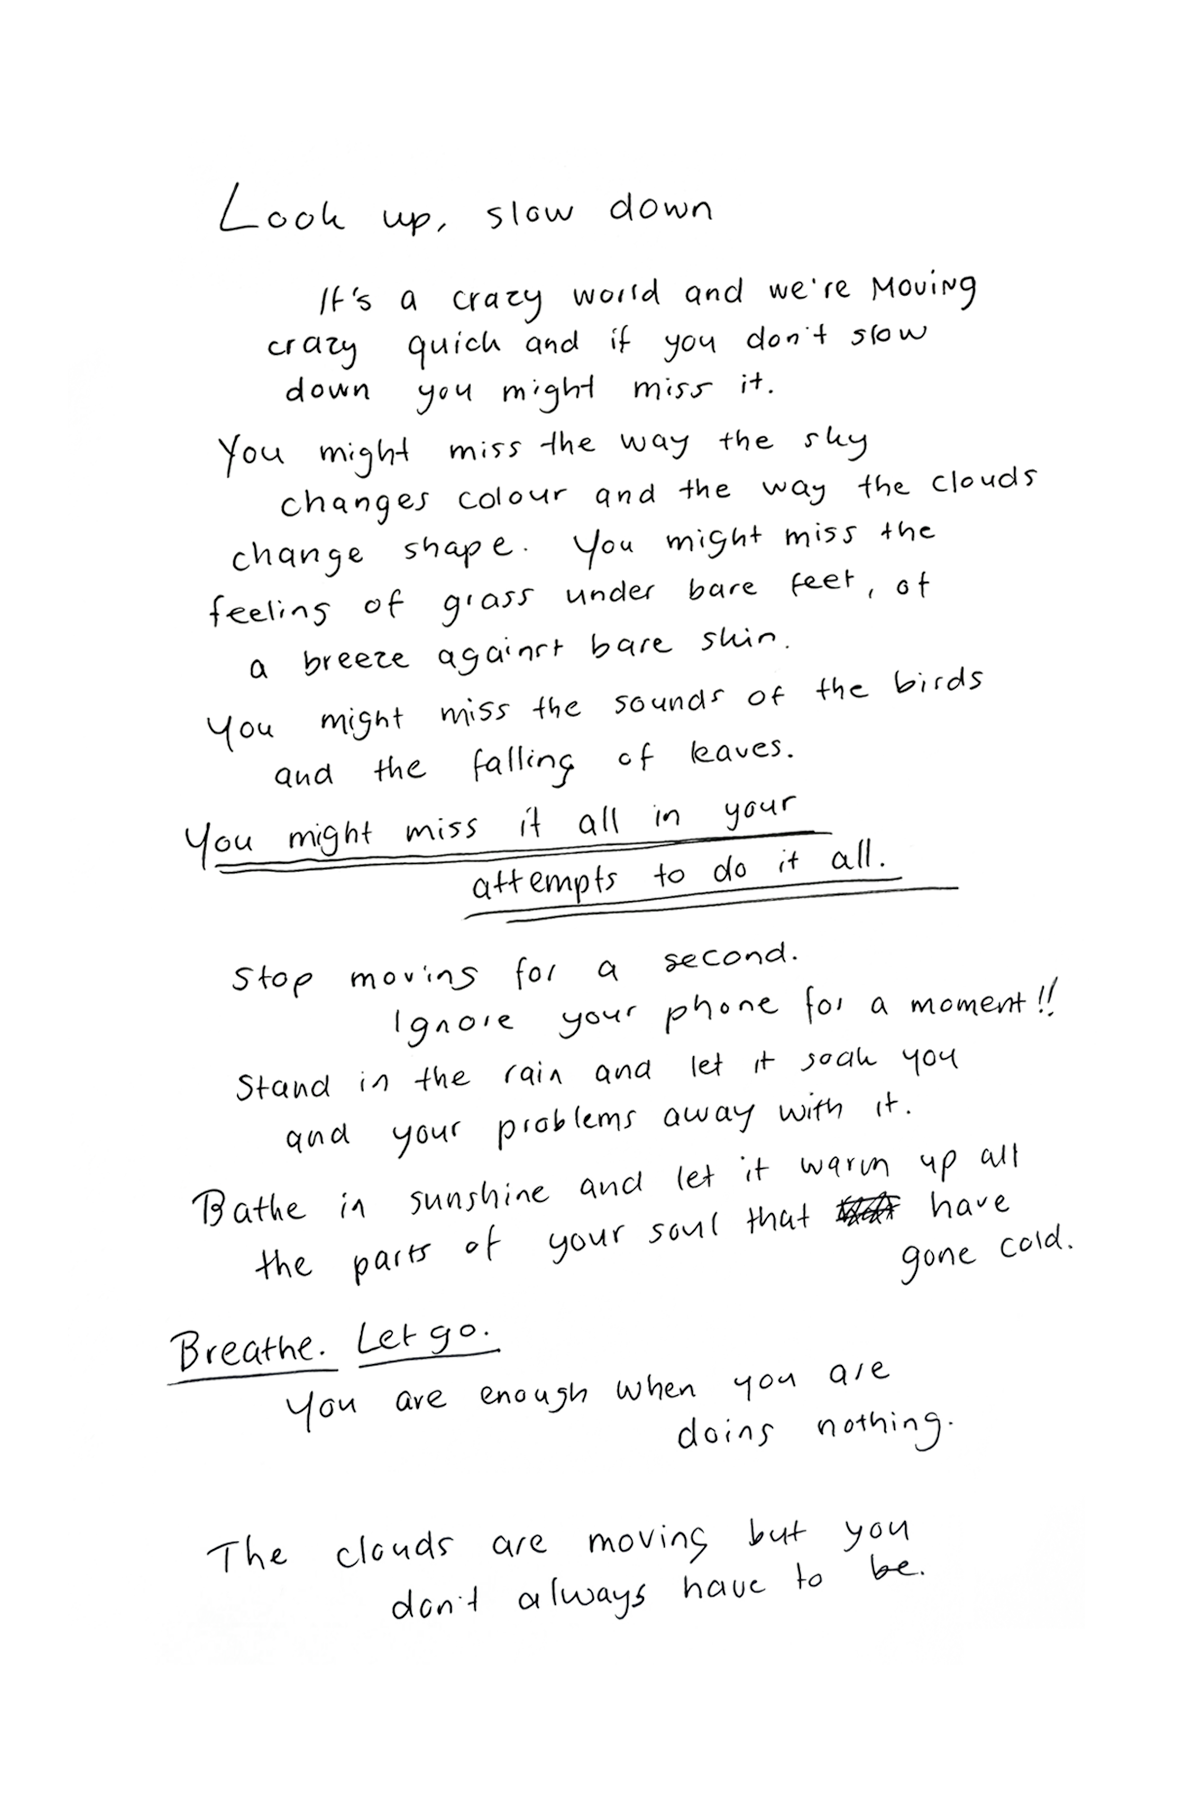 Look up, slow down
It's a crazy world and we're moving
crazy quick and if you don't slow
down you might miss it.
You might miss the way the sky
changes colour and the way the clouds
change shape. You might miss the
feeling of grass under bare feet, of
a breeze against bare skin.
You might miss the sounds of the birds
and the falling of leaves.
You might miss it all in your
attempts to do it all.
Stop moving for a second.
Ignore your phone for a moment!!
Stand in the rain and let it soak you
and your problems away with it.
Bathe in sunshine and let it warm up all
the parts of your soul that have
gone cold.
Breathe. Let go.
You are enough when you are
doing nothing.
The clouds are moving but you
don't always have to be.